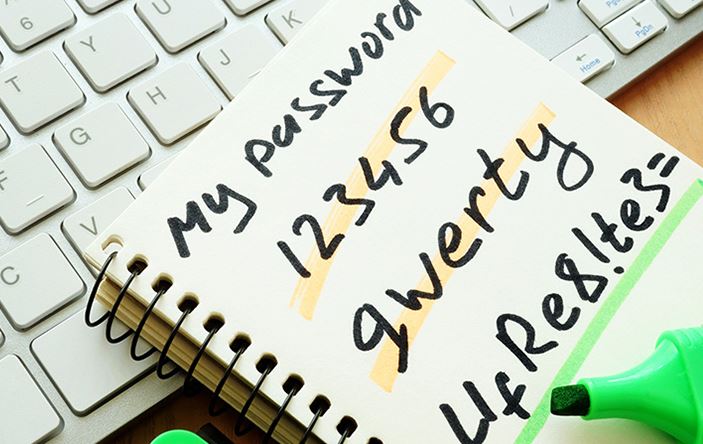 My password
123456
qwerty
UfRe8!te3=
6
T
Y
U
I
K
G
H
J
F
V
C
Home
PgUp
PgDn